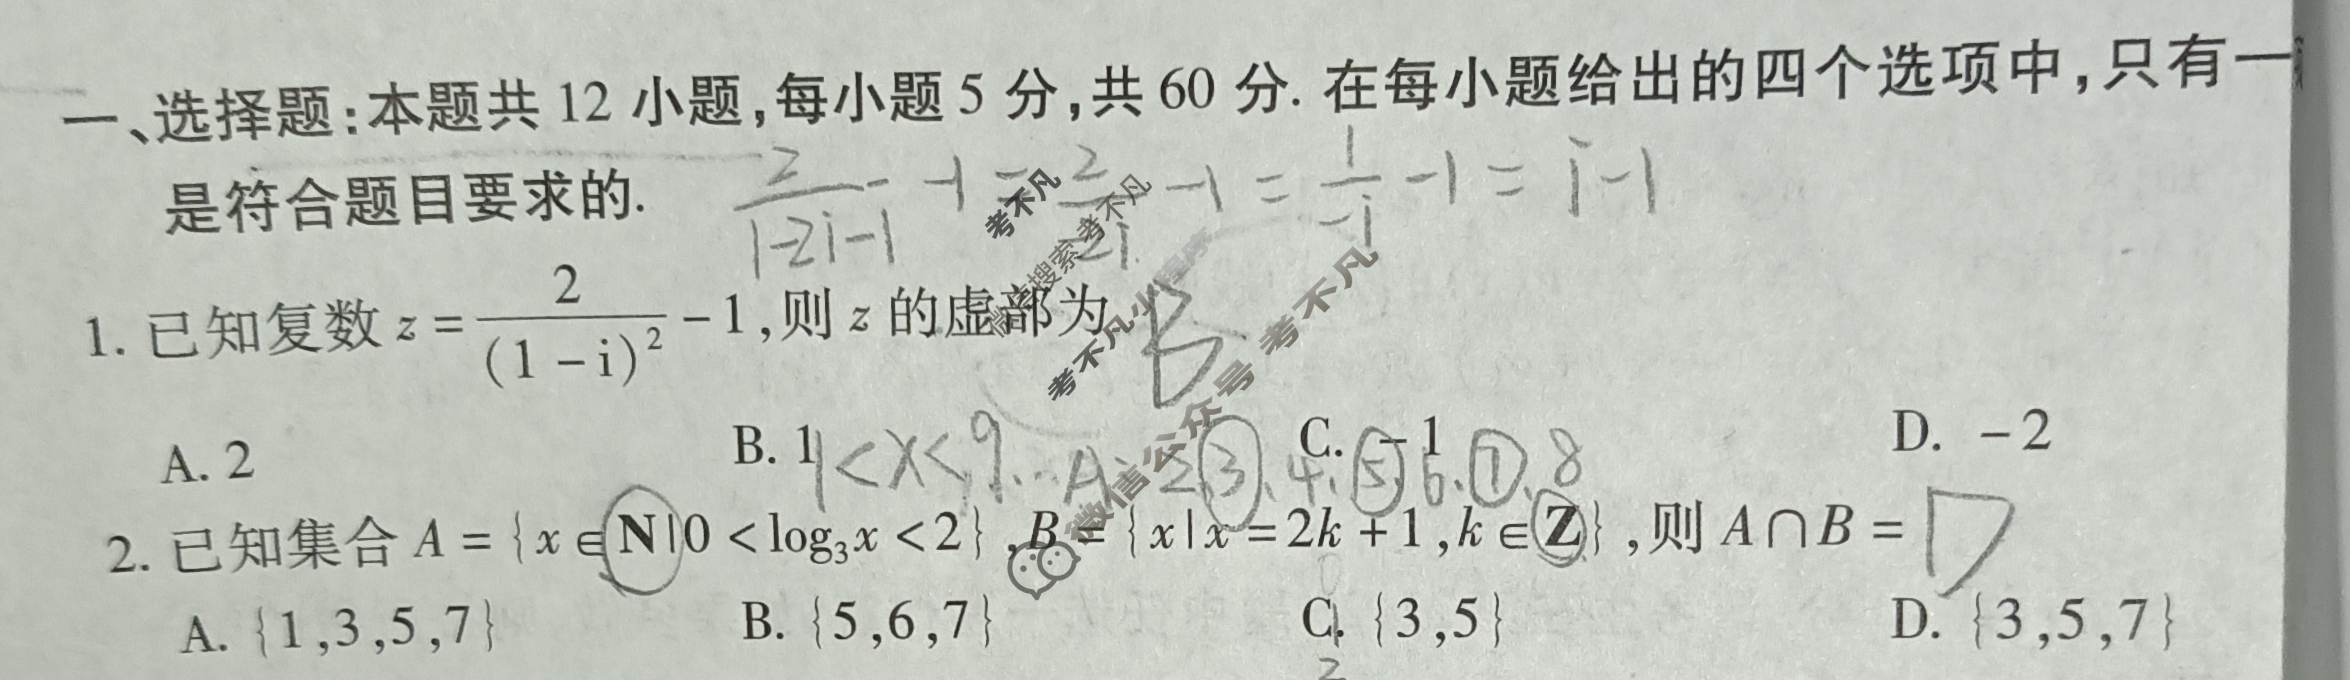 一、选择题:本题共 12 小题,每小题 5 分,共 60 分. 在每小题给出的四个选项中,只有一
是符合题目要求的.
2/(1-2i-1) - 1 = 2/(-2i) - 1 = 1/(-i) - 1 = i - 1
1. 已知复数 z = 2/(1 - i)² - 1,则 z 的虚部为 B
A. 2 B. 1 C. -1 D. -2
1<x<9. A: 2.3.4.5.6.7.8
2. 已知集合 A = {x∈N|0 < log₃x < 2},B = {x|x = 2k + 1,k∈Z},则 A∩B = D
A. {1,3,5,7} B. {5,6,7} C. {3,5} D. {3,5,7}
2
考不凡
微信搜索考不凡
考不凡小程序
微信公众号 考不凡